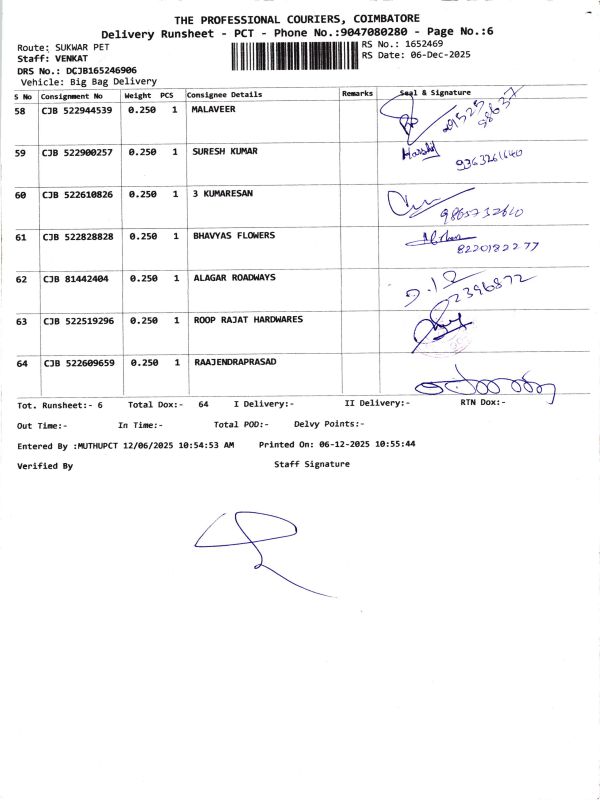 THE PROFESSIONAL COURIERS, COIMBATORE
Delivery Runsheet - PCT - Phone No.:9047080280 - Page No.:6
Route: SUKWAR PET RS No.: 1652469
Staff: VENKAT RS Date: 06-Dec-2025
DRS No.: DCJB165246906
Vehicle: Big Bag Delivery
S No Consignment No Weight PCS Consignee Details Remarks Seal & Signature
58 CJB 522944539 0.250 1 MALAVEER
59 CJB 522900257 0.250 1 SURESH KUMAR Harshil
9363261640
60 CJB 522610826 0.250 1 3 KUMARESAN
9865732610
61 CJB 522828828 0.250 1 BHAVYAS FLOWERS
8220182277
62 CJB 81442404 0.250 1 ALAGAR ROADWAYS
63 CJB 522519296 0.250 1 ROOP RAJAT HARDWARES
64 CJB 522609659 0.250 1 RAAJENDRAPRASAD
Tot. Runsheet:- 6 Total Dox:- 64 I Delivery:- II Delivery:- RTN Dox:-
Out Time:- In Time:- Total POD:- Delvy Points:-
Entered By :MUTHUPCT 12/06/2025 10:54:53 AM Printed On: 06-12-2025 10:55:44
Verified By Staff Signature